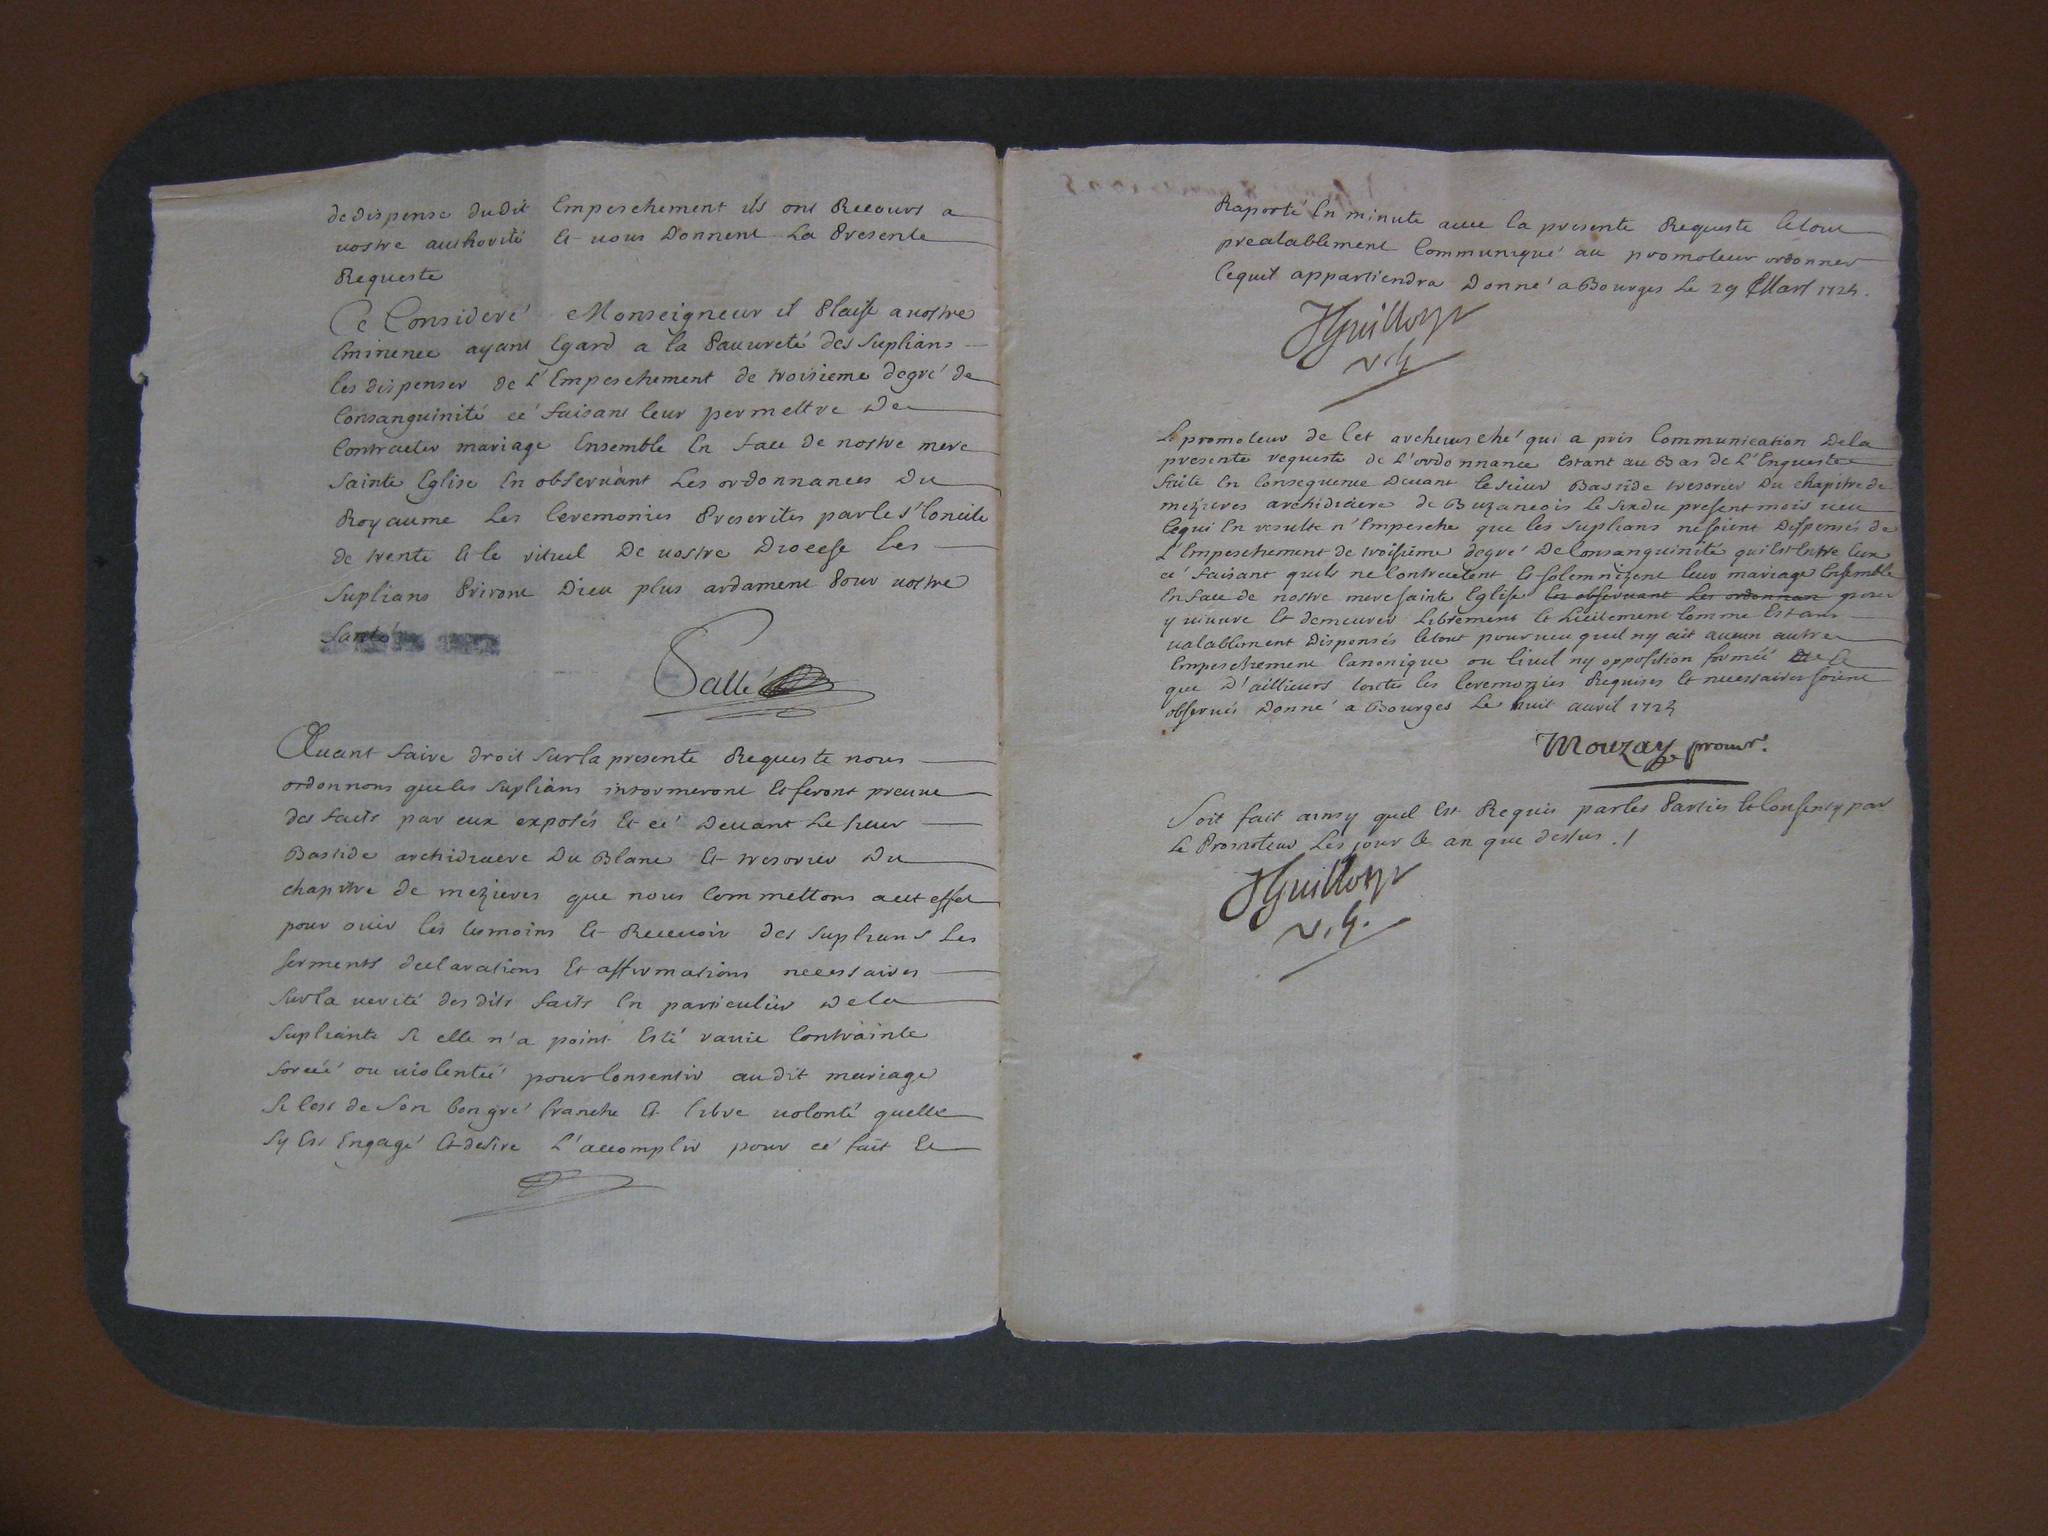 de dispense dudit Empeschement ils ont Recours a
vostre authorité Et vous Donnent La Presente
Requeste
Ce Consideré Monseigneur il Plaise a vostre
Eminence ayant Egard a la Pauureté des Suplians
les dispenser de L'Empeschement de troisieme degré de
Consanguinité cé faisant leur permettre De
Contracter mariage Ensemble En face de nostre mere
Sainte Eglise En observant Les ordonnances Du
Royaume Les Ceremonies Prescrites par le st Concile
de trente Et le rituel De vostre Diocese Les
Suplians Priront Dieu plus ardament Pour vostre
Santé
Sallé
Auant faire droit Sur la presente Requeste nous
ordonnons que les Suplians informeront Et feront preuue
des faits par eux exposés Et cé Deuant Le sieur
Bastide archidiacre Du Blanc Et tresorier Du
chapitre de mezieres que nous Commettons a cet effet
pour ouir les temoins Et Receuoir des Suplians Les
serments declarations Et affirmations necessaires
Sur la uerité des dits faits En particulier De la
Supliante Si elle n'a point Esté rauie Contrainte
forcéé ou uiolentéé pour Consentir au dit mariage
Si Cest de Son bon gré franche Et libre uolonté quelle
Sy Est Engagé Et desire L'accomplir pour cé fait Et
Raporté En minute auec la presente Requeste Le tout
prealablement Communiqué au promoteur ordonner
Ce quil appartiendra Donné a Bourges Le 29 Mars 1724.
JGuilloyr
v. g.
Le promoteur de Cet archeuesché qui a pris Communication De la
presente requeste de L'ordonnance Estant au Bas de L'Enqueste
faite En Consequence Deuant le sieur Bastide tresorier Du chapitre de
mezieres archidiacre de Buzancois Le Six du present mois ueu
Ce qui En resulte n'Empesche que les Suplians ne soient Dispensés de
L'Empeschement de troisieme degré De Consanguinité qui Est Entre Eux
cé faisant quils ne Contractent Et solemnizent leur mariage Ensemble
En face de nostre mere sainte Eglise En observant Les ordonnan pour
y uiuure Et demeurer Librement Et Licitement Comme Estans
ualablement Dispensés Le tout pourueu quil ny ait aucun autre
Empeschement Canonique ou Ciuil ny opposition forméé Et
que D'aillieurs toutes les Ceremonies Requises Et necessaires soient
obserués Donné a Bourges Le huit auril 1724
Mouzay promr.
Soit fait ainsy quil Est Requis par les Parties Et Consenty par
Le Promoteur Les jour Et an que dessus. /
JGuilloyr
v. g.